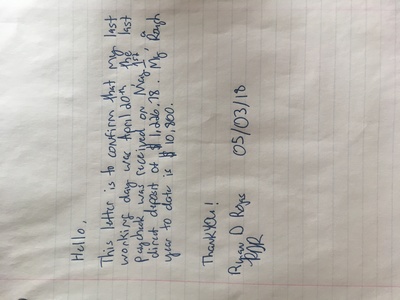 Hello,
This letter is to confirm that my last
working day was April 20th, the last
paycheck was received on May 1st, a
direct deposit of $1,226.78. My Rough
year to date is $10,800.
ThankYOu!
D 05/03/18
RDR